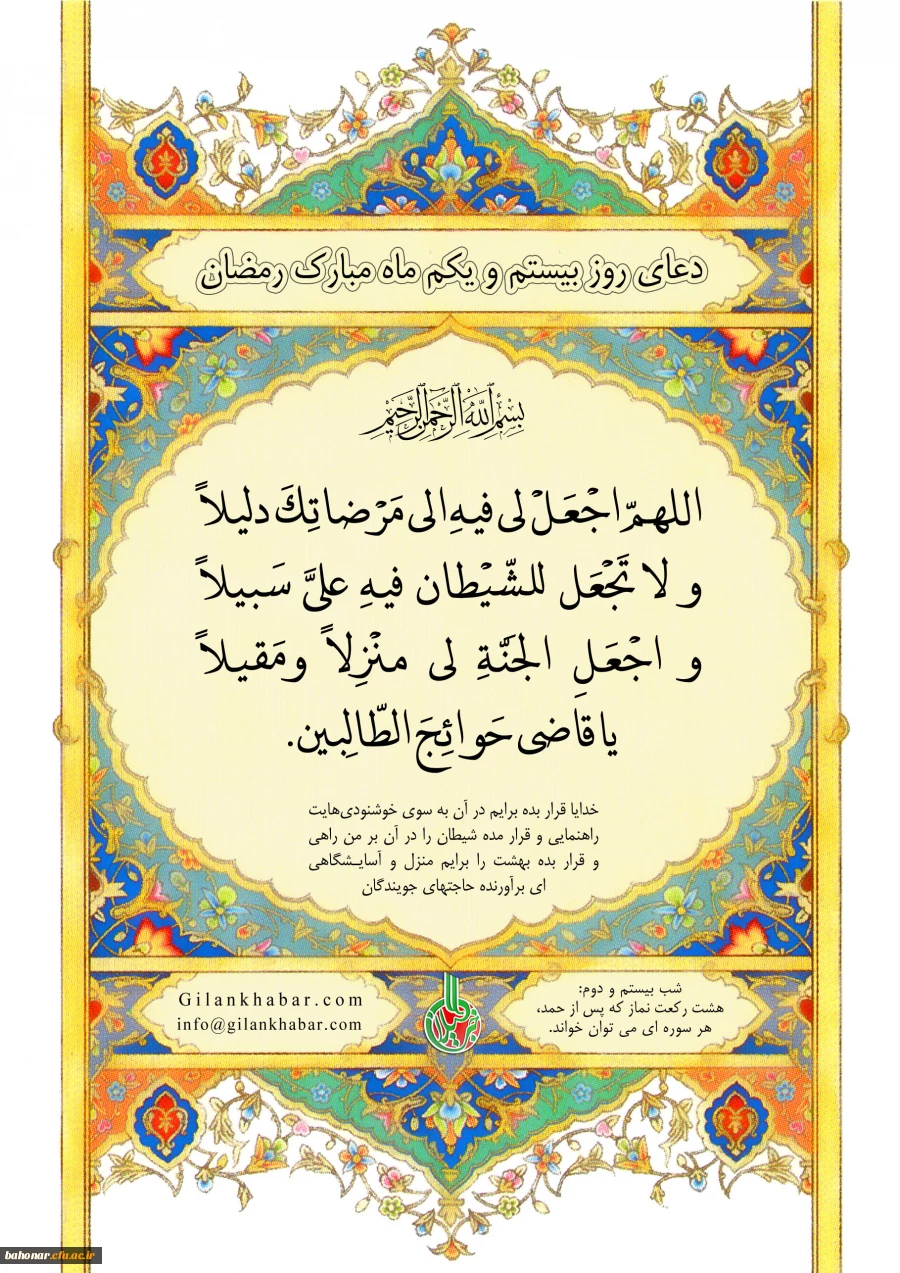 دعای روز بیستم و یکم ماه مبارک رمضان
بِسْمِ اللَّهِ الرَّحْمَنِ الرَّحِيمِ
اللهمّ اجْعَلْ لى فيهِ الى مَرْضاتِكَ دليلاً
و لا تَجْعَل للشّيْطان فيهِ علىَّ سَبيلاً
و اجْعَلِ الجنّةِ لى منْزِلاً ومَقيلاً
يا قاضى حَوائِجَ الطّالِبين.
خدایا قرار بده برایم در آن به سوی خوشنودی‌هایت
راهنمایی و قرار مده شیطان را در آن بر من راهی
و قرار بده بهشت را برایم منزل و آسایشگاهی
ای برآورنده حاجتهای جویندگان
شب بیستم و دوم:
هشت رکعت نماز که پس از حمد،
هر سوره ای می توان خواند.
Gilankhabar.com
info@gilankhabar.com
bahonar.cfu.ac.ir